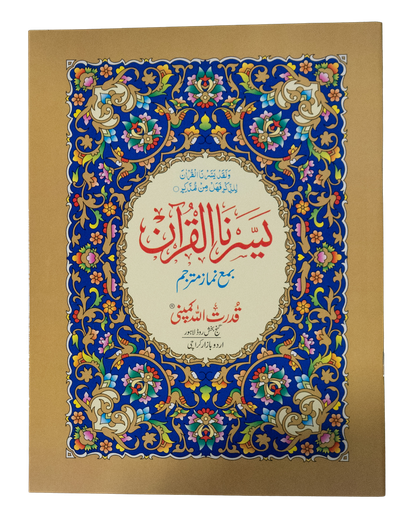 وَلَقَدْ يَسَّرْنَا الْقُرْاٰنَ
لِلذِّكْرِ فَهَلْ مِنْ مُّدَّكِرٍ ○
يَسَّرْنَا الْقُرْآن
بمع نماز مترجم
قدرت اللہ کمپنی ®
گنج بخش روڈ لاہور
اردو بازار کراچی